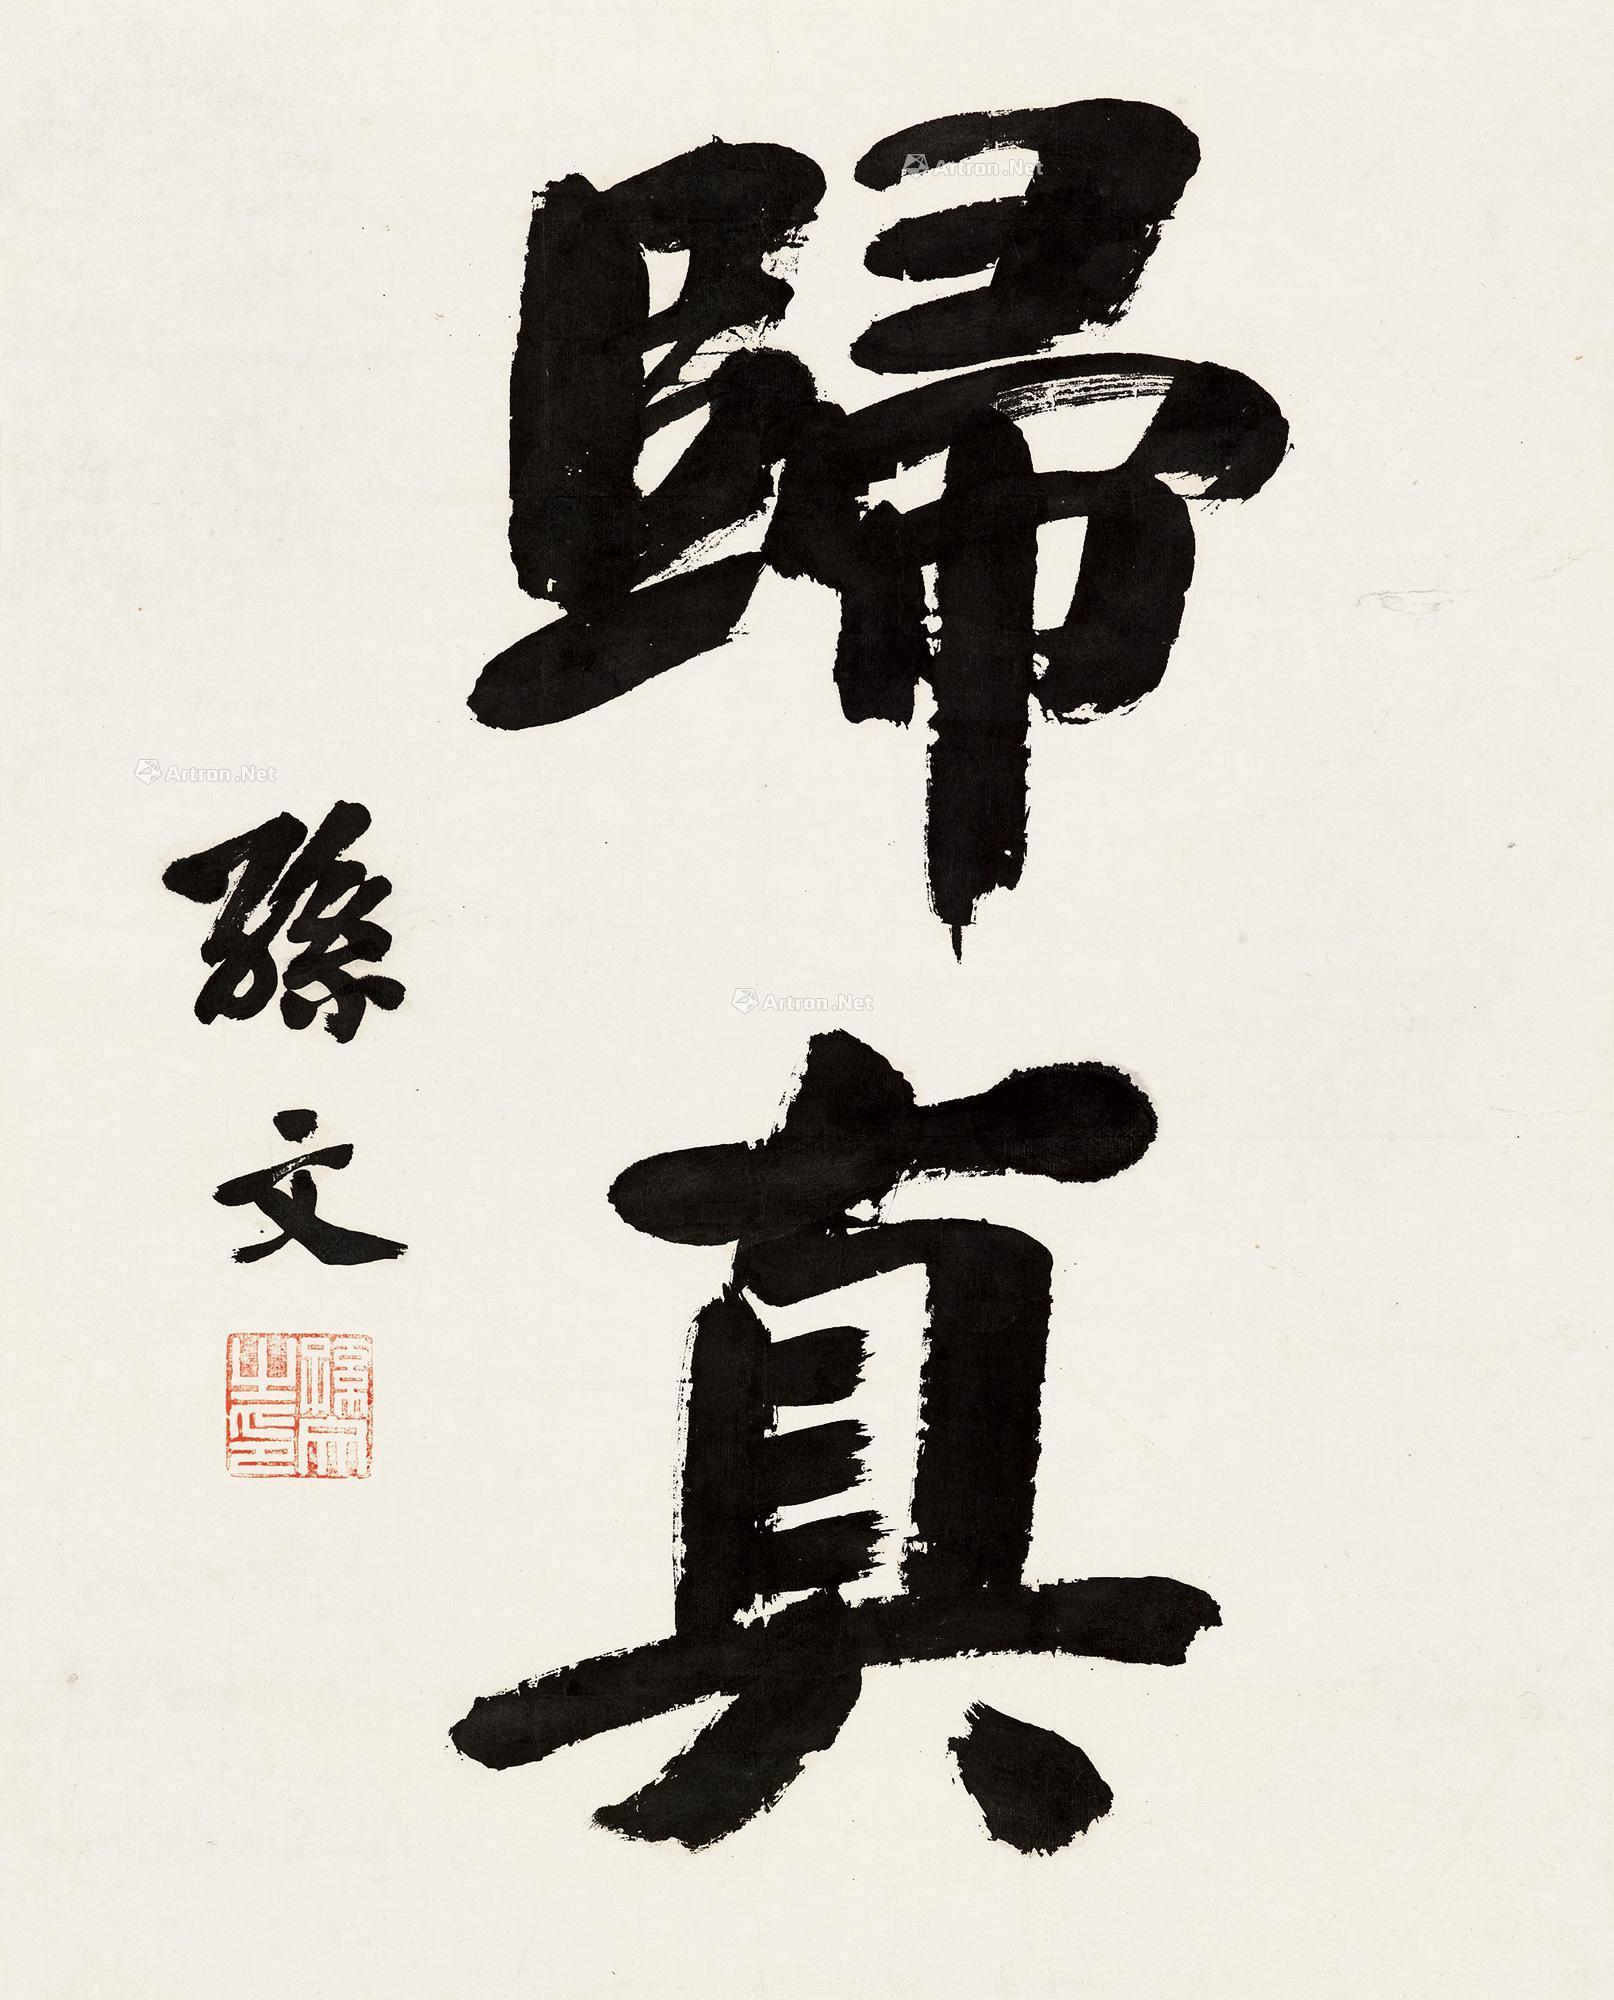 歸真
孫文
孫文之印
Artron.Net
Artron.Net
Artron.Net